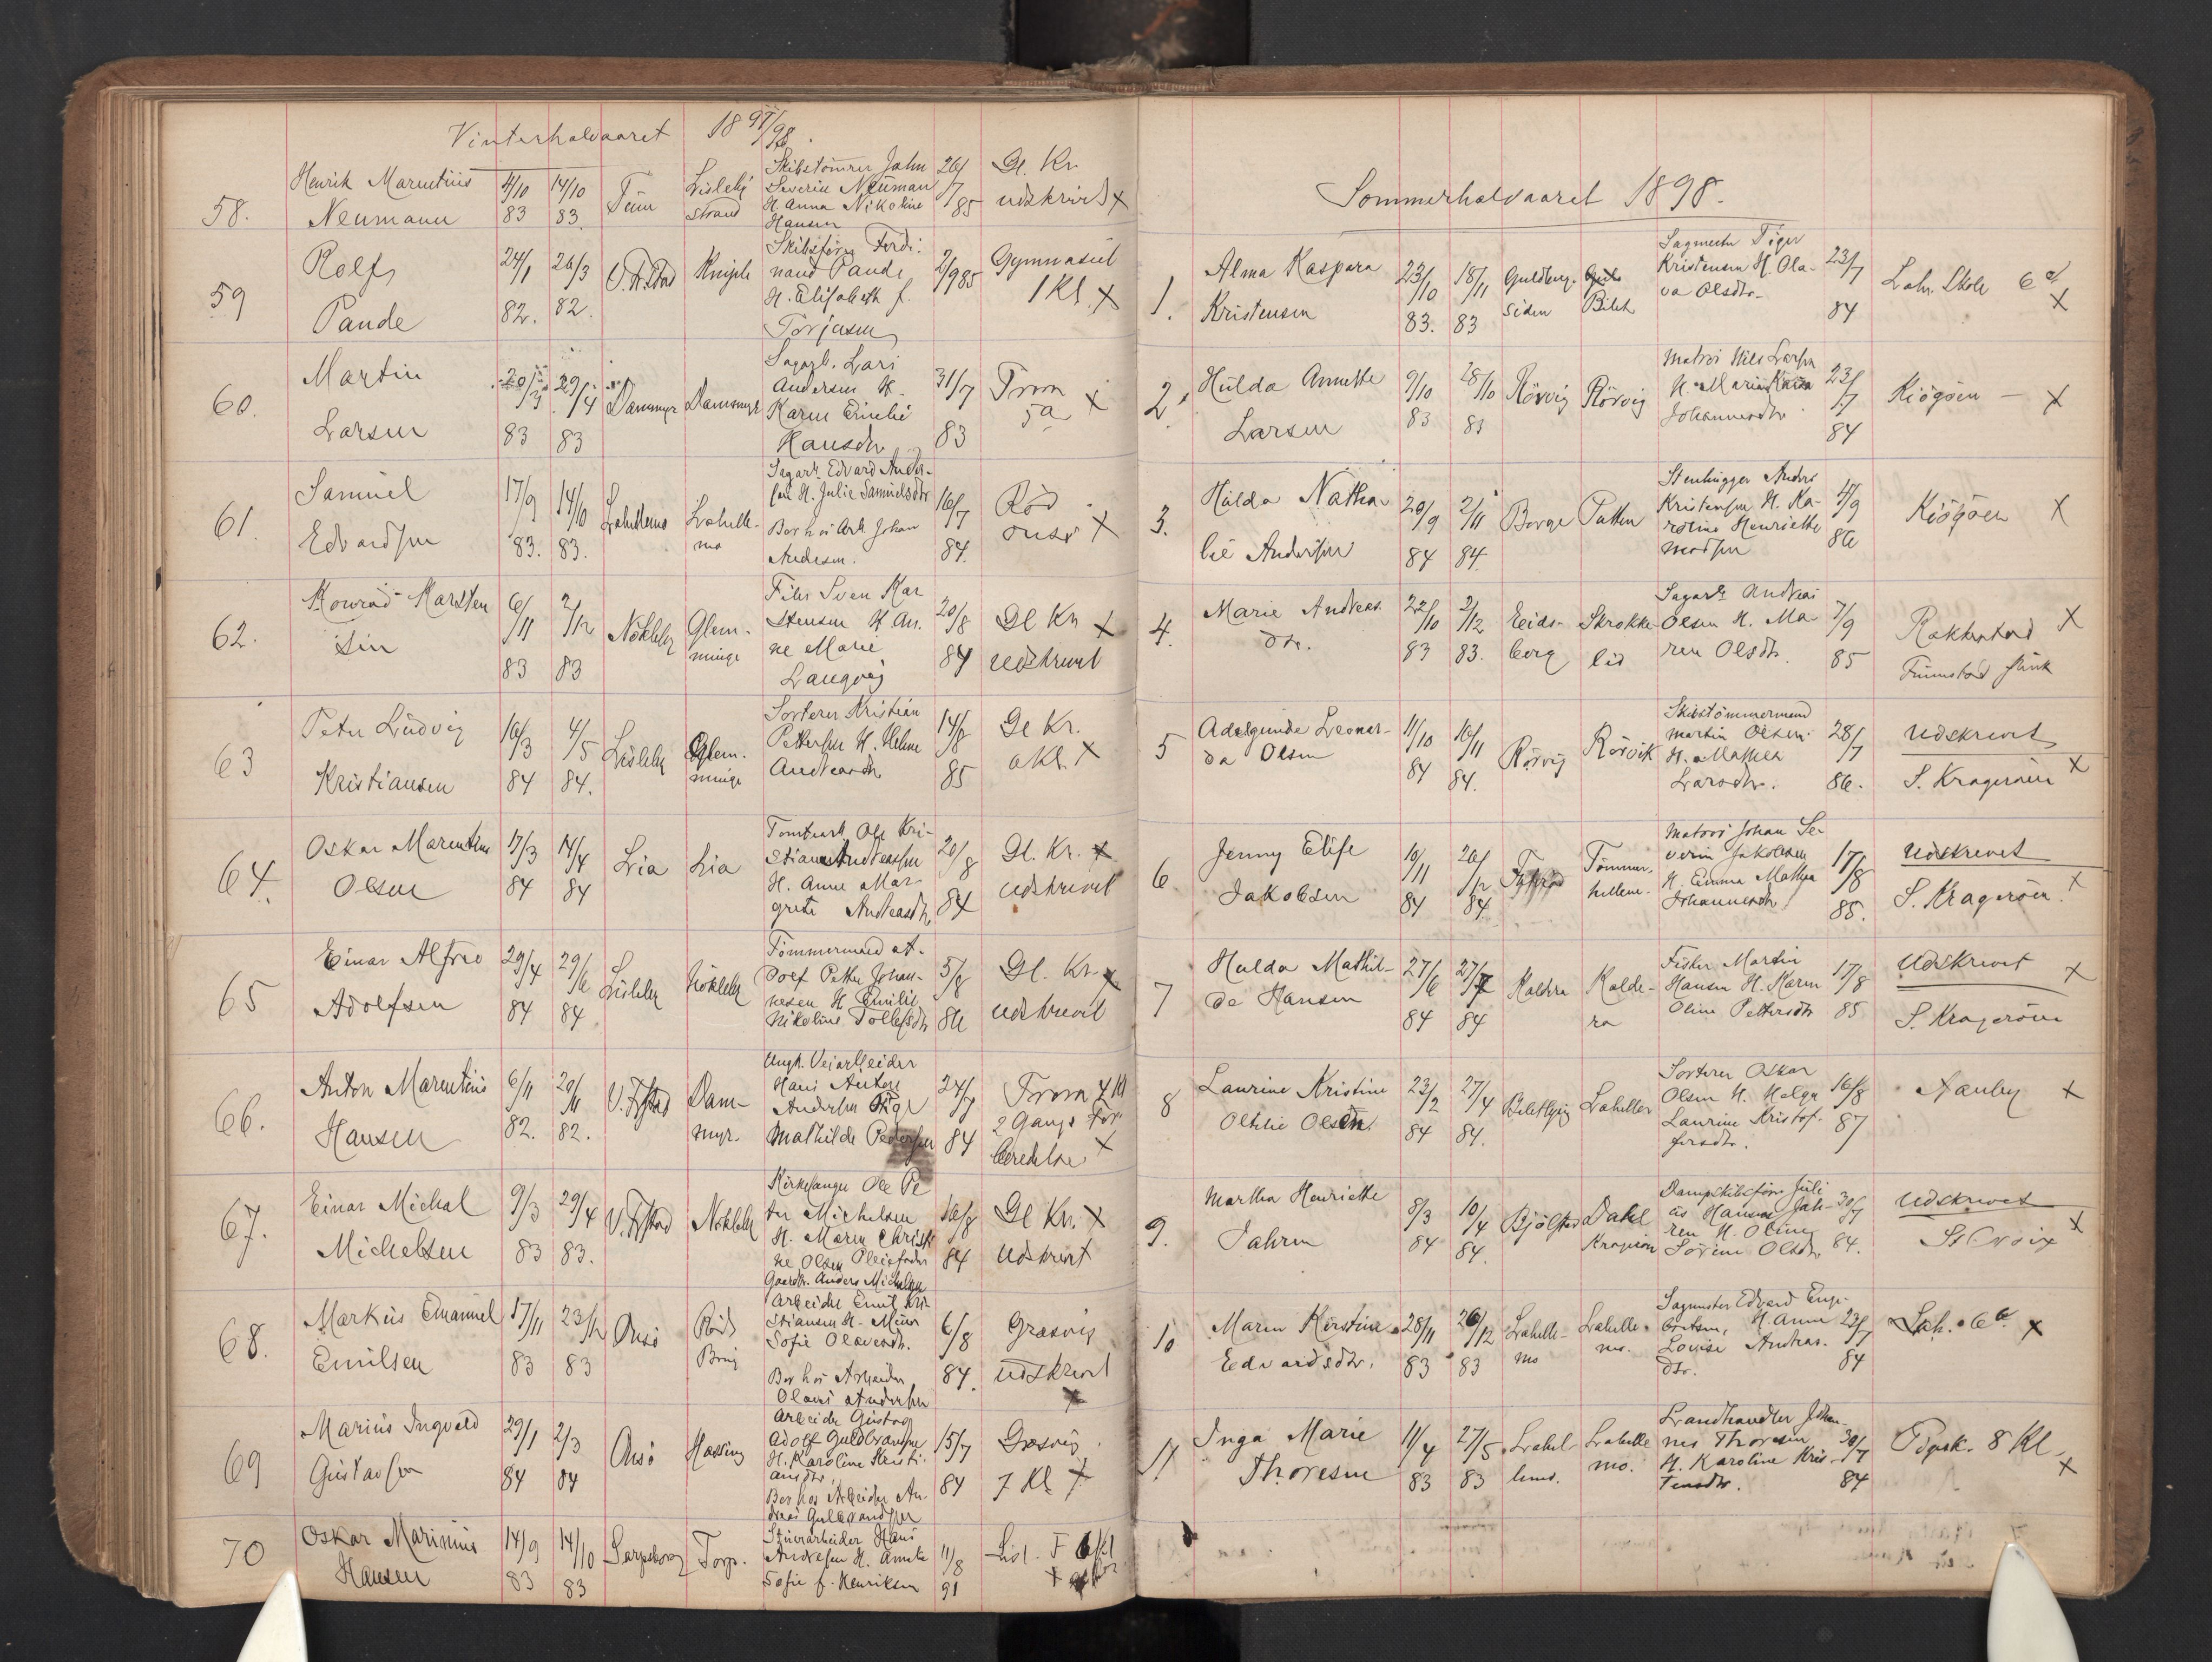 Vinterhalvaaret 1897/98.
58. Henrik Marentius Neumann 4/10 83 14/10 83. Tune Lisleby strand
Skibstømrer John
Severin Neuman
H. Anna Nikoline
Hansen
26/7 85 Gl. Kr. udskrevet X
59 Rolf Pande 24/1 82. 26/3 82. V. Fr.stad Kniple
Skibsfører Ferdi-
nand Pande
H. Elisabeth f.
Torjusen
2/9 85 Gymnasiet 1 Kl. X
60. Martin Larsen 20/3 83 29/4 83 Dammyr Dammyr
Sagarb. Lars
Andersen H.
Karen Emilie
Hansdtr
31/7 83 Trom 5a X
61. Samuel Edvardsen 17/9 83. 14/10 83. Lahellemo Lahelle-
mo
Sagarb. Edvard Ander-
sen H. Julie Samuelsdtr
Bor hos Arb. Johan
Andersen.
16/7 84. Rød onsø X
62. Konrad Karsten
sen 6/11 83 2/12 83 Nökleby Glem-
minge
Fisker Sven Kar
stensen H. An-
ne Marie
Langvig
20/8 84 Gl Kr X udskrevet
63 Peter Ludvig Kristiansen 16/3 84 4/5 84. Lisleby Glem-
minge
Sorterer Kristian
Pettersen H. Helene
Andreasdtr
14/8 85 Gl Kr. a Kl. X
64. Oskar Marentius Olsen 17/3 84 14/4 84 Lia Lia
Tomtearb. Ole Kri-
stian Andreassen
H. Anne Mar-
grete Andreasdtr
20/8 84 Gl. Kr. X udskrevet
65 Einar Alfred Adolfsen 29/4 84 29/6 84 Lisleby Nökleby
Tömmermand A-
dolf Petter Johan-
nesen H. Emilie
Nikoline Tollefsdtr
5/8 86 Gl. Kr. X udskrevet
66. Anton Marentius Hansen 6/11 82. 29/11 82. V. Fr.stad Dam-
myr.
Ungk. Veiarbeider
Hans Anton
Andersen Pige
Mathilde Pedersen
24/9 84 Trom 4 Kl
2 Gange for
beredelse X
67. Einar Michal Michelsen 9/3 83 29/4 83. V. Fr.stad Nökleby
Kirkesanger Ole Pe
ter Michelsen
H. Maren Christi
ne Olsen Pleiefader
Gaardbr. Anders Michelsen
16/8 84 Gl Kr. X udskrevet
68. Markus Emanuel Emilsen 17/11 83 23/12 83 Onsö Röds
Brug
Arbeider Emil Kri-
stiansen H.
Sofie Olavesdtr.
Bor hos Arbeider
Olaves Andersen
6/8 84. Græsvig udskrevet X
69 Marius Ingvald Gustavsen 29/1 84 2/3 84 Onsö Hassing
Arbeider Gustav
Adolf Guldbrandsen
H. Karoline Kristi-
ansdtr.
Bor hos Arbeider An-
dreas Gulbrandsen
15/7 84 Græsvig 7 Kl X
70 Oskar Marinius Hansen 14/9 83 14/10 83 Sarpsborg Torp.
Stuvarbeider Hans
Andresen H. Anette
Sofie f. Henriksen
11/8 91 Lisl. F 6 Kl X
Sommerhalvaaret 1898.
1. Alma Kaspara Kristensen 23/10 83. 18/11 83 Guldberg-
siden Bilet
Sagmester Tiger
Kristensen H. Ola-
va Olsdtr.
23/7 84 Lah. Skole 6 a X
2. Hulda Annette Larsen 9/10 83 28/10 83 Rörvig Rörvig
Matros Nils Larsen
H. Maria Karin
Johannesdtr
23/7 84 Kiögöen X
3. Hulda Natha
lie Andersen 20/9 84 2/11 84 Borge Putten
Stenhugger Anders
Kristensen H. Ka-
roline Henriette
Madsen
4/9 86 Kiögöen X
4. Marie Andreas
dtr. 22/10 83 2/12 83. Eids-
berg Skrokke-
lid
Sagarb. Andreas
Olsen H. Ma-
ren Olsdtr.
7/9 85 Rakkestad X
5 Adelgunde Leonar-
da Olsen 11/10 84 16/11 84. Rörvig Rörvik
Skibstömmermand
Martin Olsen
H. Mathea
Larsdtr.
28/7 86. udskrevet S. Krageröen X
6. Jenny Elise Jakobsen 10/11 84 26/12 84 Tömmer-
hellene.
Matros Johan Se-
verin Jakobsen
H. Emma Mathea
Johannesdtr
17/8 85. udskrevet S. Krageröen X
7 Hulda Mathil-
de Hansen 27/6 84 27/7 84 Kaldera Kalde-
ra
Fisker Martin
Hansen H. Karen
Oline Pettersdtr
17/8 85 udskrevet X S. Krageröen
8 Laurine Kristine
Othilie Olsen 23/2 84 27/4 84. Lahellen
Sorterer Oskar
Olsen H. Helga
Laurine Kristof-
fersdtr.
16/8 87 Nauley X
9. Martha Henriette Jahren 8/3 84 10/4 84. Bjölstad Dahl
Krageröen
Dampskibsförer Juli
us Hansen Jah-
ren H. Oline
Sörine Olsdtr.
30/7 84. udskrevet St Croix X
10 Maren Kirstine
Edvardsdtr. 28/11 83 26/12 83 Lahelle-
mo Lahelle-
mo.
Sagmester Edvard Enge-
bretsen, H. Anne
Lovise Andreas-
dtr.
23/7 84 Lah. 6 a X
11 Inga Marie Thoresen 11/4 83 27/5 83 Lahel-
lemo. Lahelle
mo.
Landhandler Johan-
nes Thoresen
H. Karoline Kris-
tensdtr.
30/7 84 Pigesk. 8 Kl X